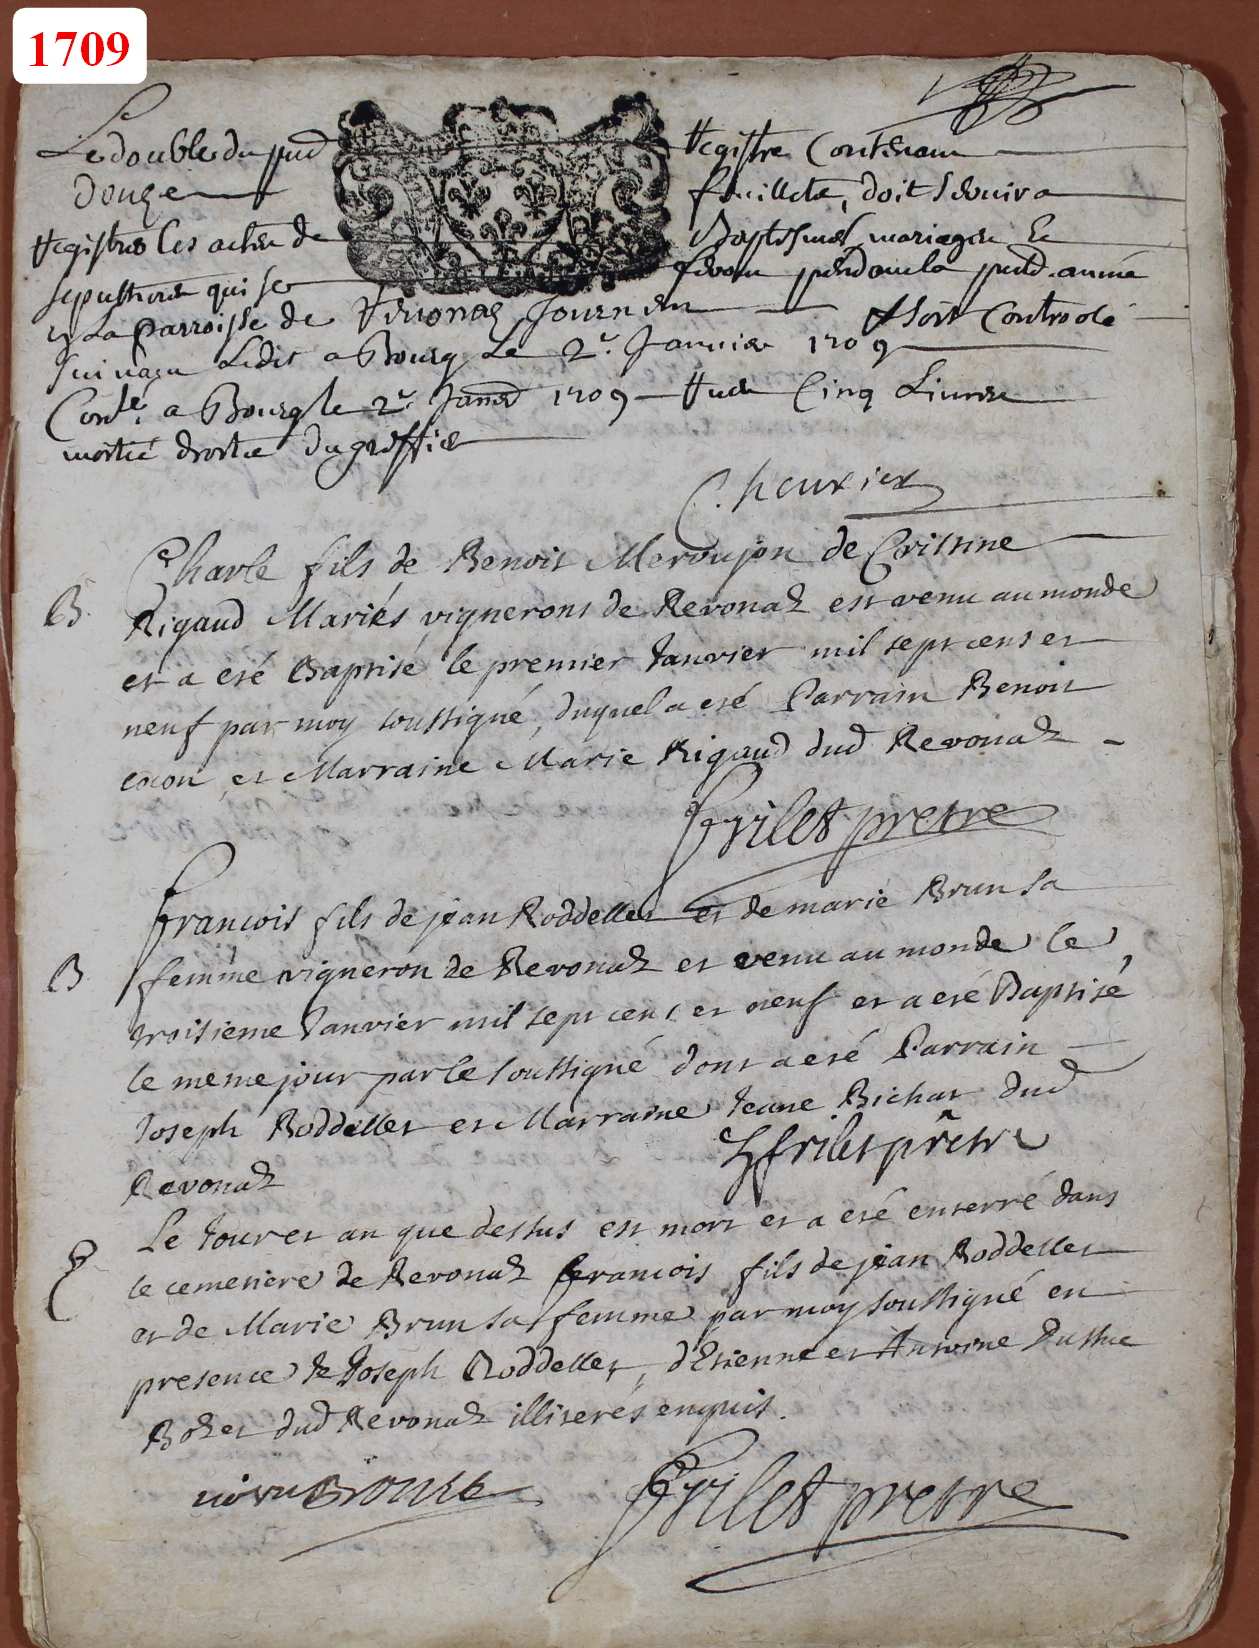 1709
Le double du pnt Registre Contenant
Douze feuillets, doit servir a
Registrer les actes de Baptesmes, mariages Et
sepultures qui se feront pendant la pntte année
en La parroisse de Revonas Journans Et sera Controlé
suivant Ledit a Bourg Le 2e. Janvier 1709
Conlé. a Bourg le 2e. Janvr 1709 Recu Cinq Livres
moitié droits du greffier
Chevrier
Charle fils de Benoit Meroujon de Cristine
B Rigaud Mariés vignerons de Revonaz est venu au monde
et a eté Baptisé le premier Janvier mil sept cens et
neuf par moy soussigné, duquel a eté Parrain Benoit
cocon et Marraine Marie Rigaud dud Revonaz
Frilet pretre
Francois fils de jean Roddellet et de marie Brun sa
B femme vigneron de Revonaz et venu au monde le
troisieme Janvier mil sept cens et neuf et a eté Baptisé
le meme jour par le soussigné dont a eté Parrain
Joseph Roddellet et Marraine Jeane Bichat dud
Revonaz
frilet prêtre
Le Jour et an que dessus est mort et a eté enterré dans
le cemetiere de Revonaz francois fils de jean Roddellet
et de Marie Brun sa femme par moy soussigné en
presence de Joseph Roddellet, d'Etienne et Antoine
Bozet dud Revonaz illiterés enquis.
Frilet pretre